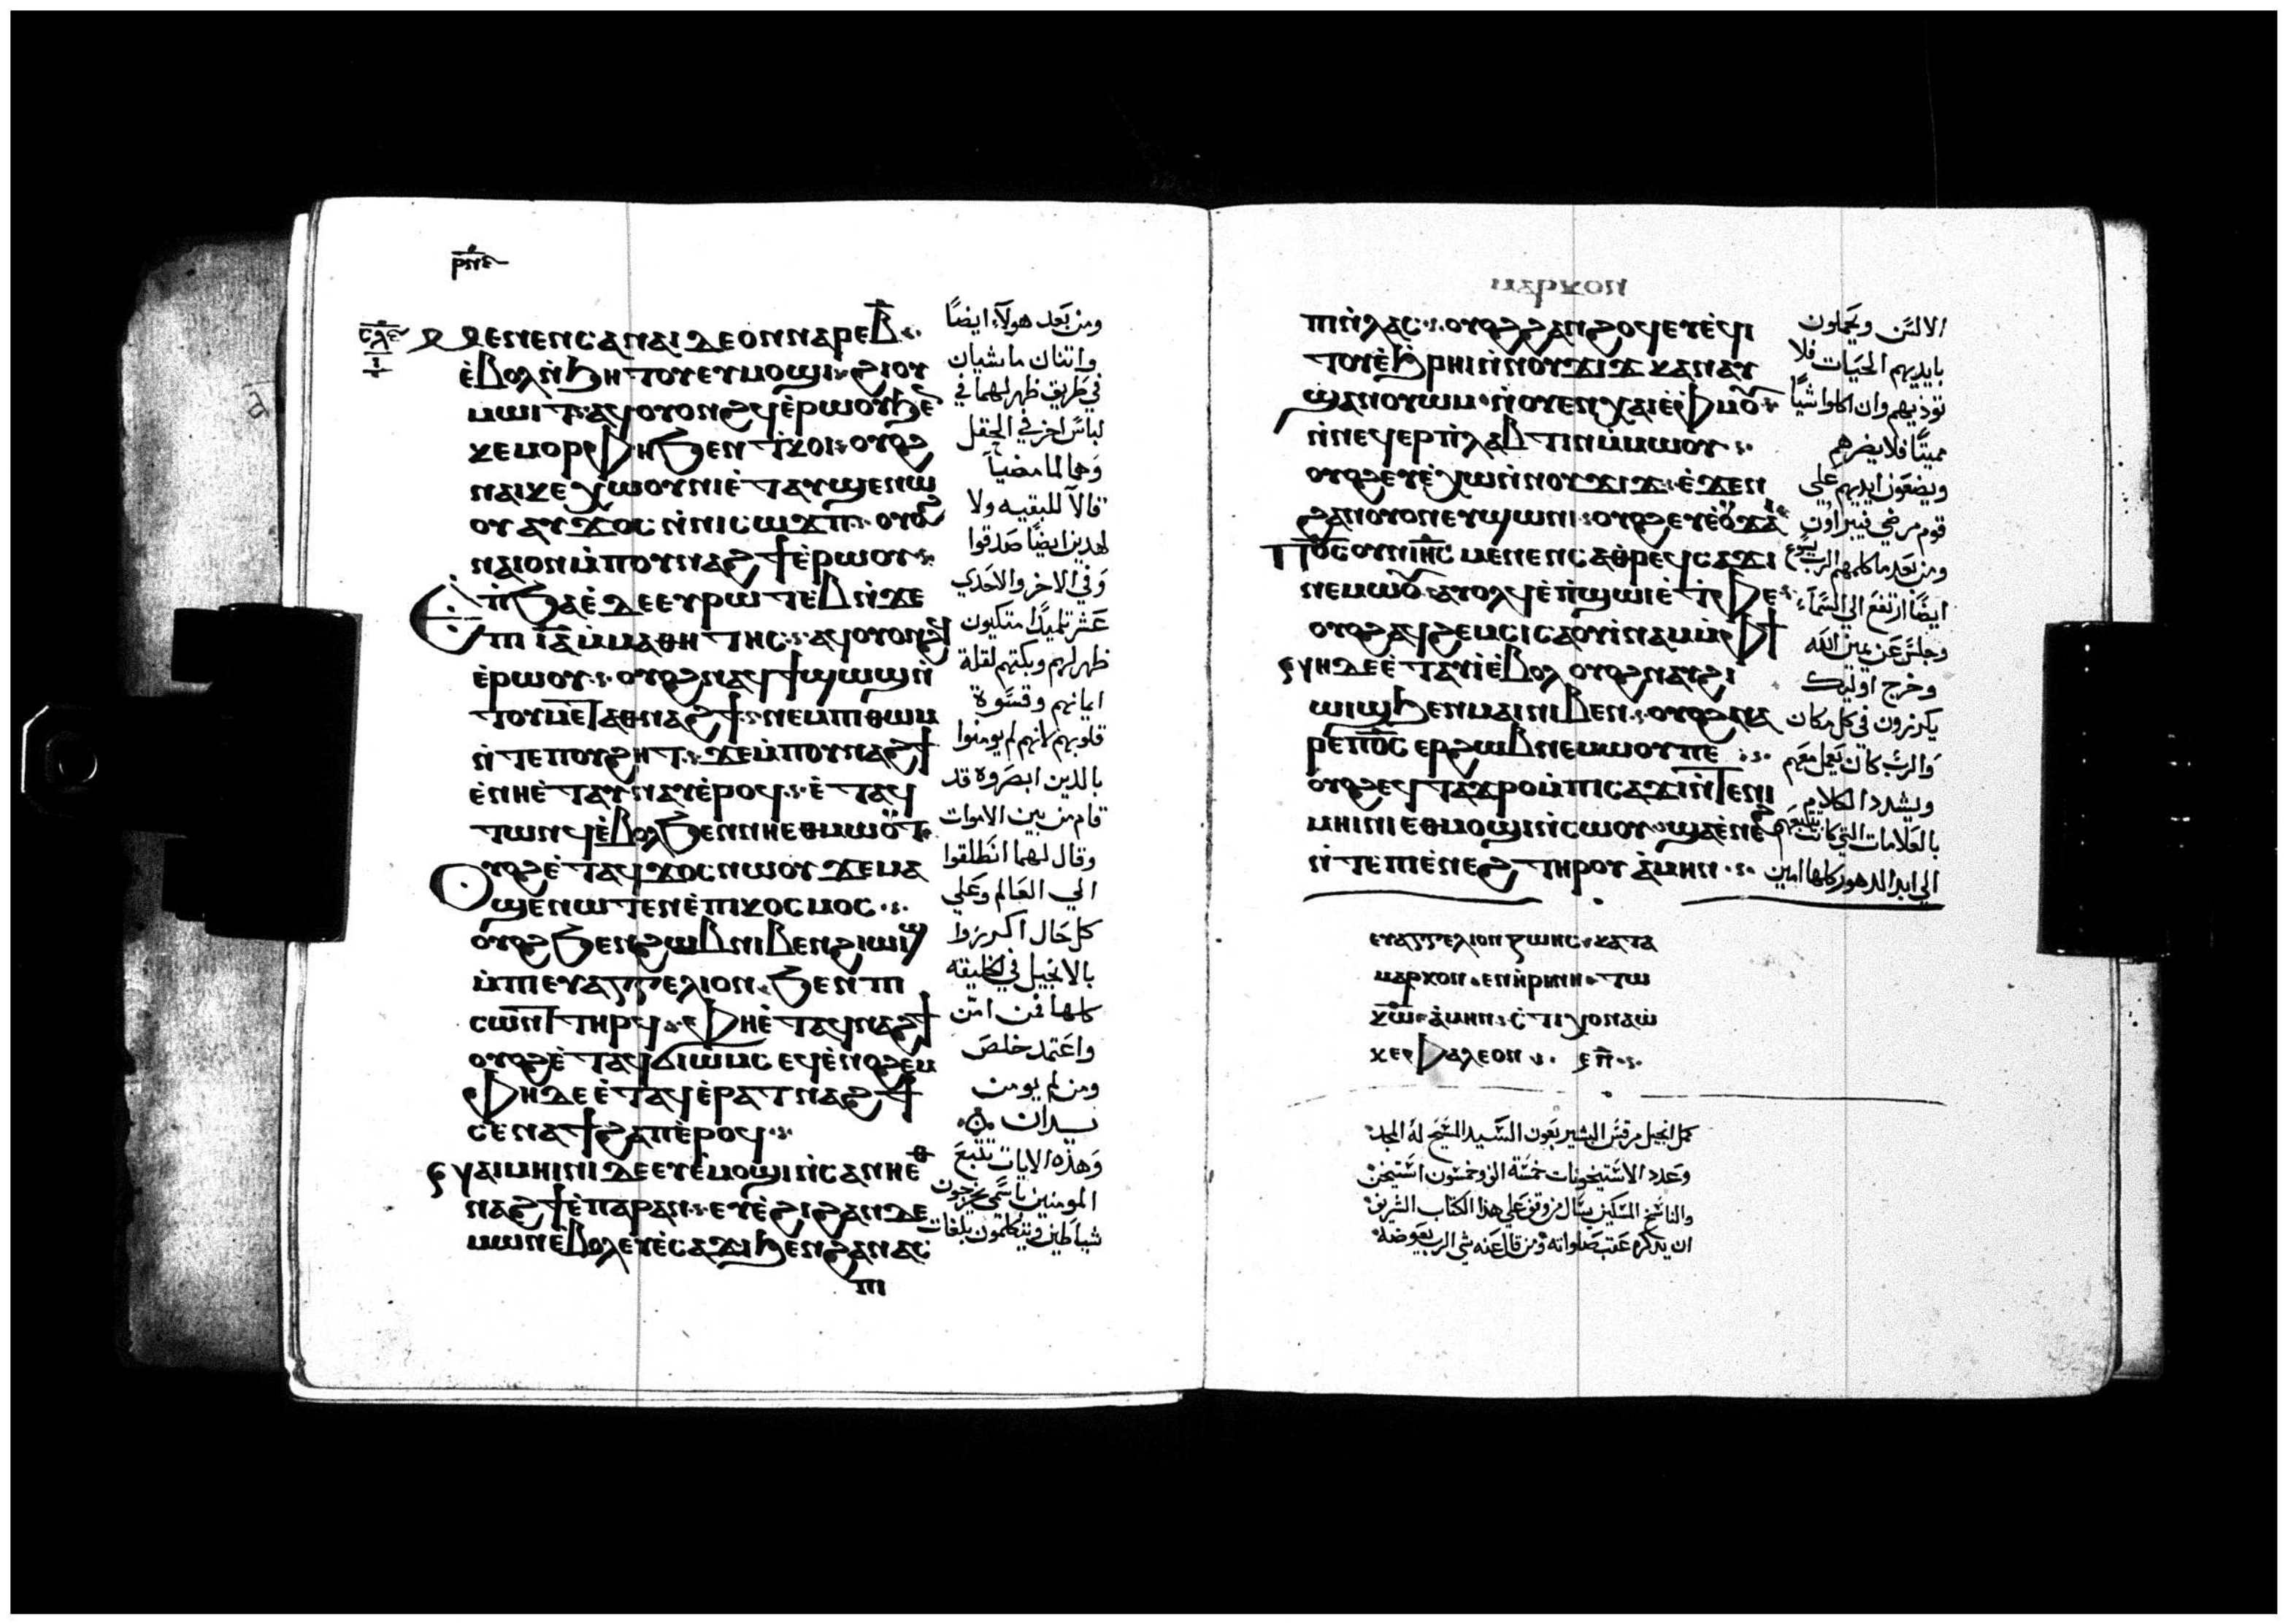 ⲣⲛⲉ
ⲥⲗⲉ
ⲙⲉⲛⲉⲛⲥⲁⲛⲁⲓⲇⲉⲟⲛⲛⲁⲣⲉⲃ̅
ⲉ̇ⲃⲟⲗⲛ̇ϧⲏⲧⲟⲩⲉⲩⲙⲟϣⲓ ϩⲓⲟⲩ
ⲙⲱⲓⲧ ⲁϥⲟⲩⲟⲛϩϥⲉ̇ⲣⲱⲟⲩϧⲉ̅
ⲕⲉⲙⲟⲣⲫⲏϧⲉⲛⲧⲕⲟⲓ ⲟⲩⲟϩ
ⲛⲁⲓⲕⲉⲭⲱⲟⲩⲛⲓⲉ̇ⲧⲁⲩϣⲉⲛⲱ
ⲟⲩ ⲁⲩϫⲟⲥ ⲛ̇ⲛⲓⲥⲱϫⲡ ⲟⲩⲟϩ
ⲛⲁⲓⲟⲛⲙ̇ⲡⲟⲩⲛⲁϩϯⲉ̇ⲣⲱⲟⲩ
ⲉ̇ⲡ̇ϧⲁⲉ̇ ⲇⲉⲉⲩⲣⲱⲧⲉⲃⲛ̇ϫⲉ
ⲡⲓⲓ̅ⲁ̅ⲙ̇ⲙⲁⲑⲏⲧⲏⲥ ⲁϥⲟⲩⲟⲛϩϥ
ⲉ̇ⲣⲱⲟⲩ ⲟⲩⲟϩⲛⲁϥϯϣⲱϣⲛ̇
ⲧⲟⲩⲙⲉⲧⲁⲑⲛⲁϩϯ ⲛⲉⲙⲡⲑⲱⲙ
ⲛ̇ⲧⲉⲡⲟⲩϩⲏⲧ ϫⲉⲙ̇ⲡⲟⲩⲛⲁϩϯ
ⲉ̇ⲛⲏⲉ̇ⲧⲁⲩⲛⲁⲩⲉ̇ⲣⲟϥ ⲉ̇ⲧⲁϥ
ⲧⲱⲛϥⲉ̇ⲃⲟⲗϧⲉⲛⲛⲏⲉⲑⲙⲱⲟⲩⲧ
ⲟⲩⲟϩⲉ̇ⲧⲁϥϫⲟⲥⲛⲱⲟⲩ ϫⲉⲙⲁ
ϣⲉⲛⲱⲧⲉⲛⲉ̇ⲡⲓⲕⲟⲥⲙⲟⲥ
ⲟⲩⲟϩϧⲉⲛϩⲱⲃⲛⲓⲃⲉⲛϩⲓⲱⲓϣ
ⲙ̇ⲡⲓⲉⲩⲁⲅⲅⲉⲗⲓⲟⲛ ϧⲉⲛⲡⲓ
ⲥⲱⲛⲧ ⲧⲏⲣϥ ⲫⲏⲉ̇ⲧⲁϥⲛⲁϩϯ
ⲟⲩⲟϩⲉ̇ⲧⲁϥϭⲓⲱⲙⲥ ⲉϥⲉ̇ⲛⲟϩⲉⲙ
ⲫⲏⲇⲉⲉ̇ⲧⲁϥⲉ̇ⲣⲁⲧⲛⲁϩϯ
ⲥⲉⲛⲁϯϩⲁⲡⲉ̇ⲣⲟϥ
ϩⲁⲓⲙⲏⲓⲛⲓ ⲇⲉⲉⲩⲉ̇ⲙⲟϣⲓⲛ̇ⲥⲁⲛⲏⲉⲑ
ⲛⲁϩϯⲉ̇ⲡⲁⲣⲁⲛ ⲉⲩⲉ̇ϩⲓϩⲁⲛⲇⲉ
ⲙⲱⲛⲉ̇ⲃⲟⲗⲉⲩⲉ̇ⲥⲁϫⲓϧⲉⲛϩⲁⲛⲁⲥ
ⲡⲓ
ومن بعد هولاء ايضاً
واتنان ماشيان
في طريق ظهر لهما في
لباس اخر في الحقل
وهما لما مضيا
قالا للبقيه ولا
لهدين ايضاً صدقوا
وفي الاخر والاحدي
عشر تلميداً متكيون
ظهر لهم وبكتهم لقلة
ايمانهم وقسوة
قلوبهم لانهم لم يومنوا
بالدين ابصروه قد
قام من بين الاموات
وقال لهما انطلقوا
الي العالم وعلي
كل حال اكرزوا
بالانجيل في الخليقه
كلها فمن امن
واعتمد خلص
ومن لم يومن
يدان
وهذه الايات تتبع
المومنين باسمي يخرجون
شياطين ويتكلمون بلغات
ⲙⲁⲣⲕⲟⲛ
ⲡⲓⲛ̇ⲗⲁⲥ ⲟⲩⲟϩϩⲁⲛϩⲟϥⲉⲩⲉ̇ϥⲓ
ⲧⲟⲩⲉ̇ϧⲣⲏⲓⲛ̇ⲛⲟⲩϫⲓϫ ⲕⲁⲛⲁⲩ
ϣⲁⲛⲟⲩⲱⲙ ⲛ̇ⲟⲩⲉⲛⲭⲁⲓⲉ̇ⲫⲙⲟⲩ
ⲛ̇ⲛⲉϥⲉⲣⲡ̇ⲗⲁⲃⲧⲓⲛⲙ̇ⲙⲱⲟⲩ
ⲟⲩⲟϩⲉⲩⲉ̇ⲭⲱⲛ̇ⲛⲟⲩϫⲓϫ ⲉ̇ϫⲉⲛ
ϩⲁⲛⲟⲩⲟⲛⲉⲩϣⲱⲛⲓ ⲟⲩⲟϩⲉⲩⲉ̇ⲟⲩϫⲁⲓ
ⲡⲟ̅ⲥ̅ⲟⲩⲛⲓⲏ̅ⲥ̅ ⲙⲉⲛⲉⲛⲥⲁⲑⲣⲉϥⲥⲁϫⲓ
ⲛⲉⲙⲱⲟⲩ ⲁⲩⲟⲗϥⲉ̇ⲡ̇ϣⲱⲓⲉ̇ⲧ̇ⲫⲉ
ⲟⲩⲟϩⲁϥϩⲉⲙⲥⲓⲥⲁⲟⲩⲓ̇ⲛⲁⲙⲙ̇ⲫϯ
ⲛⲏⲇⲉⲉ̇ⲧⲁⲩⲓ̇ⲉ̇ⲃⲟⲗ ⲟⲩⲟϩⲛⲁⲩϩⲓ
ⲱⲓϣϧⲉⲛⲙⲁⲓⲛⲓⲃⲉⲛ ⲟⲩⲟϩⲛⲁ
ⲣⲉⲡⲟ̅ⲥ̅ ⲉⲣϩⲱⲃⲛⲉⲙⲱⲟⲩⲡⲉ
ⲟⲩⲟϩⲉϥⲧⲁϫⲣⲟⲙ̇ⲡⲓⲥⲁϫⲓⲛ̇ⲧⲉⲛⲓ
ⲙⲏⲓⲛⲓⲉⲑⲙⲟϣⲓⲛ̇ⲥⲱⲟⲩ ϣⲁⲉ̇ⲛⲉϩ
ⲛ̇ⲧⲉⲡⲓⲉ̇ⲛⲉϩ ⲧⲏⲣⲟⲩ ⲁ̇ⲙⲏⲛ
الالسن ويحملون
بايديهم الحيات فلا
توذيهم وان اكلوا شياً
مميتاً فلا يضرهم
ويضعون ايديهم علي
قوم مرضي فيبراون
ومن بعد ما كلمهم الرب يسوع
ايضاً ارتفع الي السماء
وجلس عن يمين الله
وخرج اوليك
يكرزون في كل مكان
والرب كان يعمل معهم
ويشدد الكلام
بالعلامات التي كانت تتبعهم
الي ابد الدهور كلها امين
ⲉⲩⲁⲅⲅⲉⲗⲓⲟⲛ ⲍⲱⲏⲥ ⲕⲁⲧⲁ
ⲙⲁⲣⲕⲟⲛ ⲉⲛⲓⲣⲏⲛⲏ ⲧⲱ
ⲕ̅ⲱ̅ ⲁ̇ⲙⲏⲛ ⲥ̇ⲧⲓⲭⲟⲛ
ⲕⲉⲫⲁⲗⲉⲟⲛ
كمل انجيل مرقس البشير بعون السيد المسيح له المجد
وعدد الاستيخونات خمسة الف وخمسون استيخن
والناسخ المسكين يسال من وقف علي هذا الكتاب الشريف
ان يذكره عقب صلواته ومن قال عنه شي الرب يعوضه